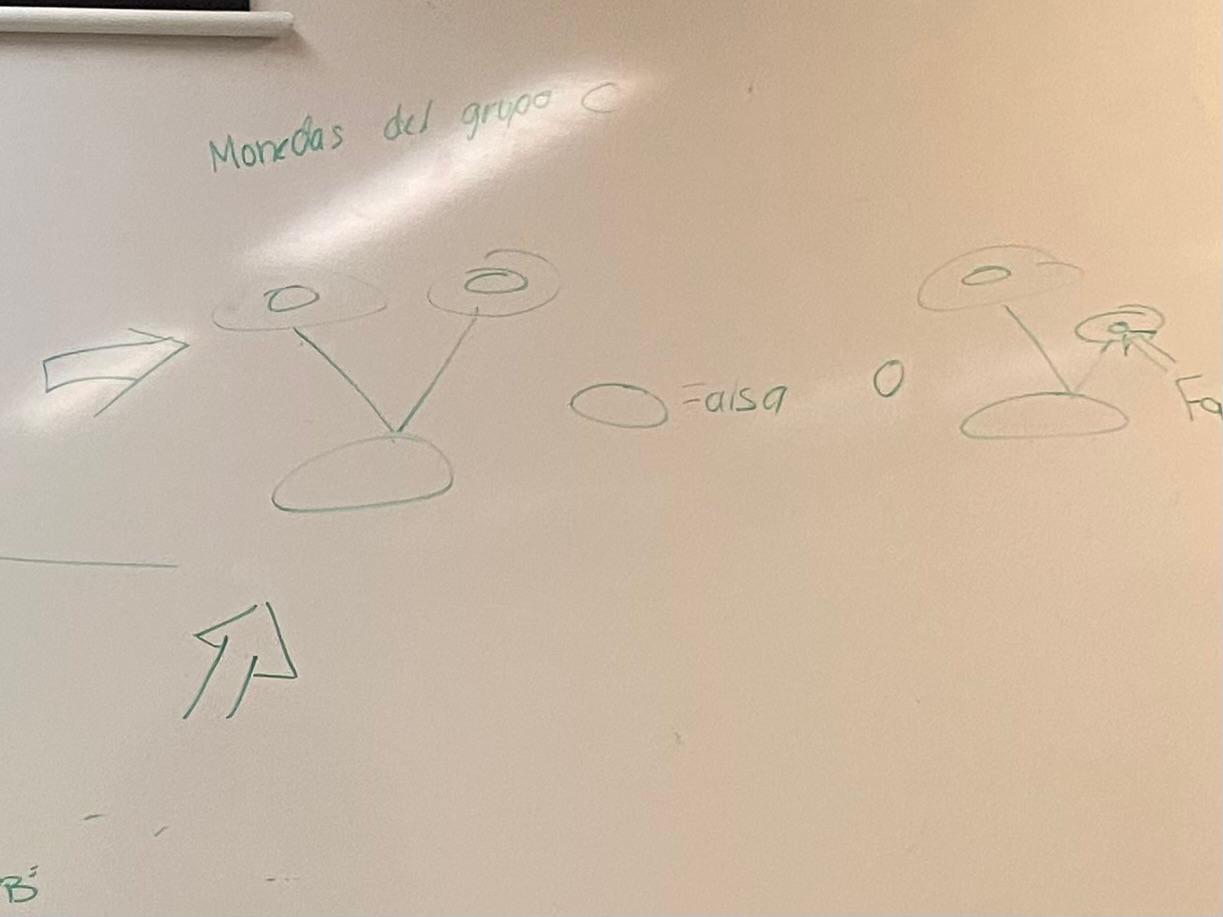 Monedas del grupo C
Falsa o Fa
B